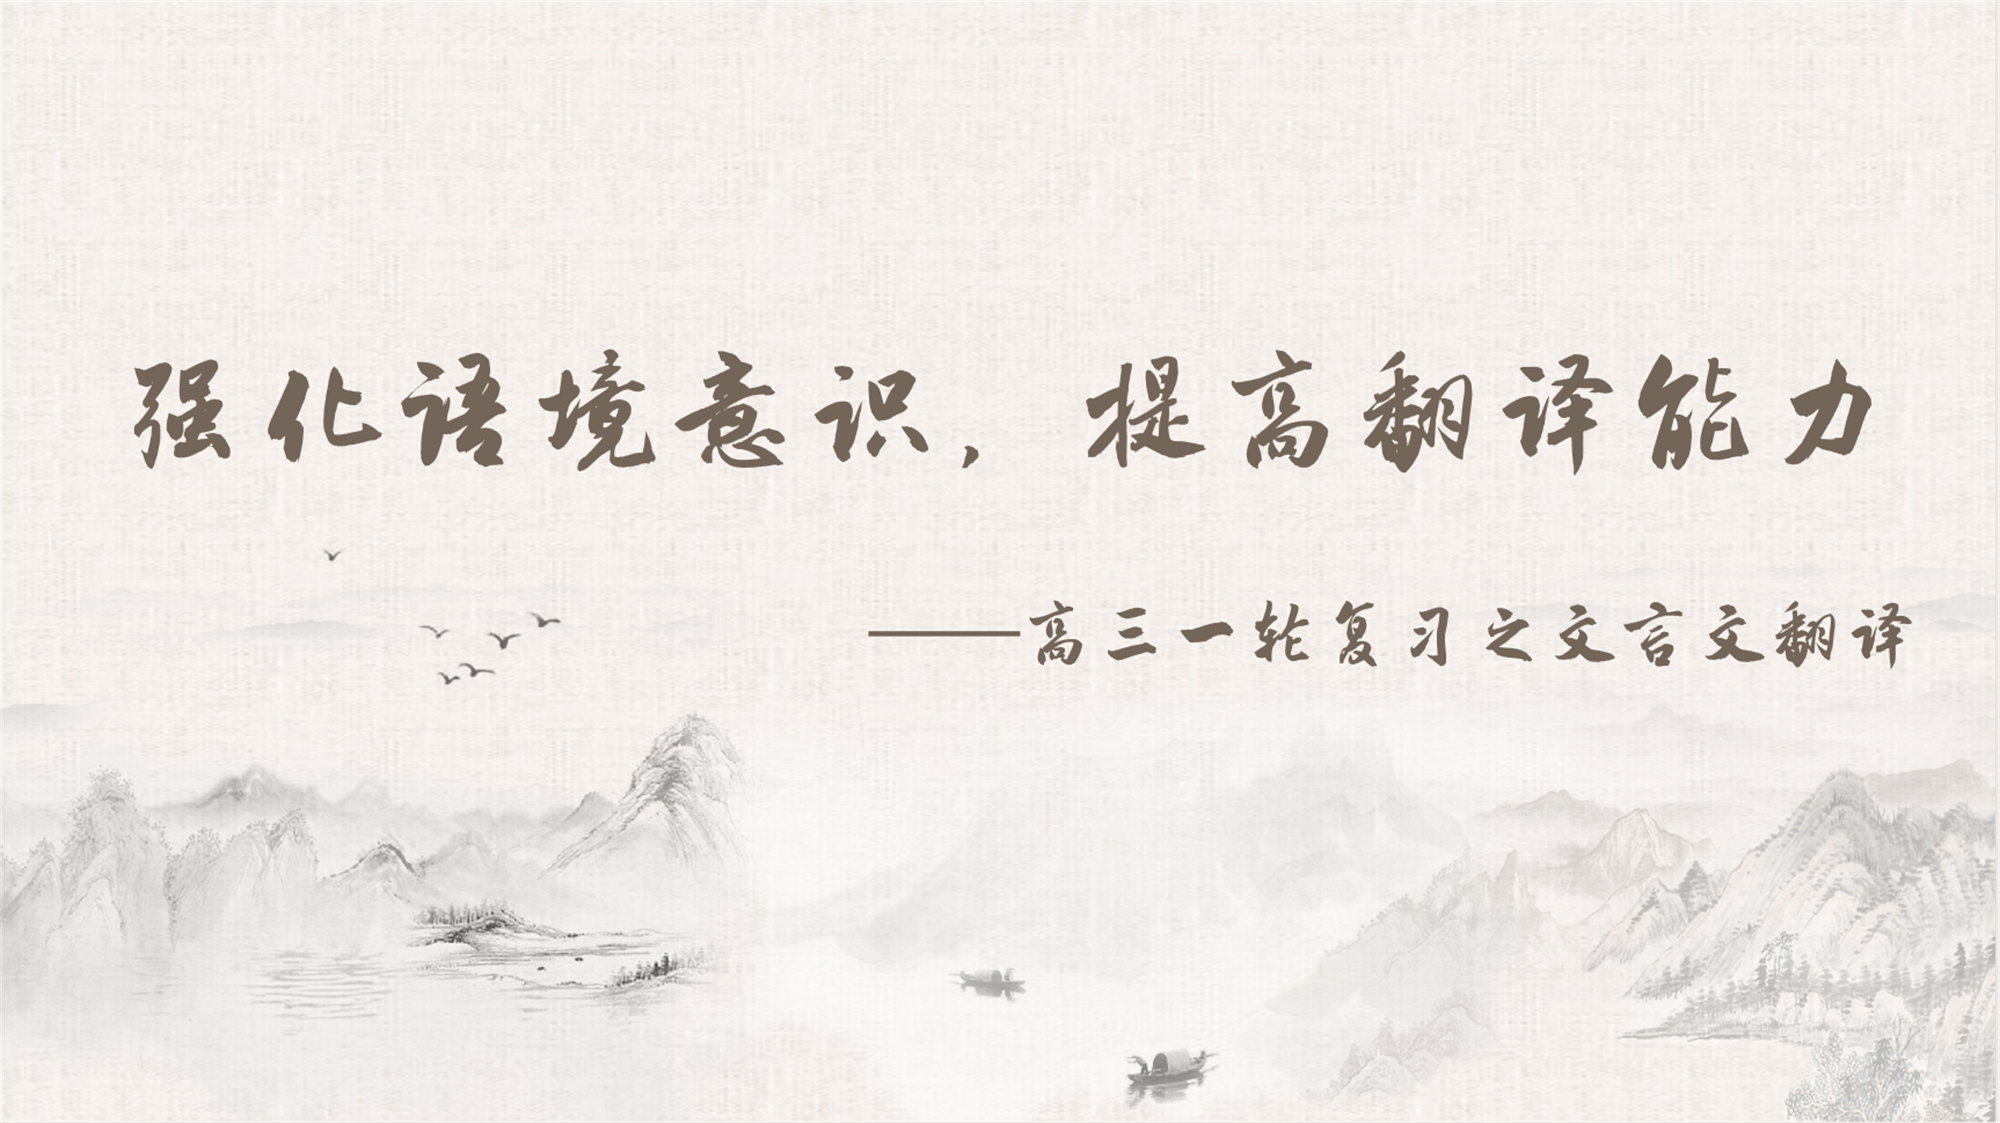 强化语境意识，提高翻译能力
——高三一轮复习之文言文翻译